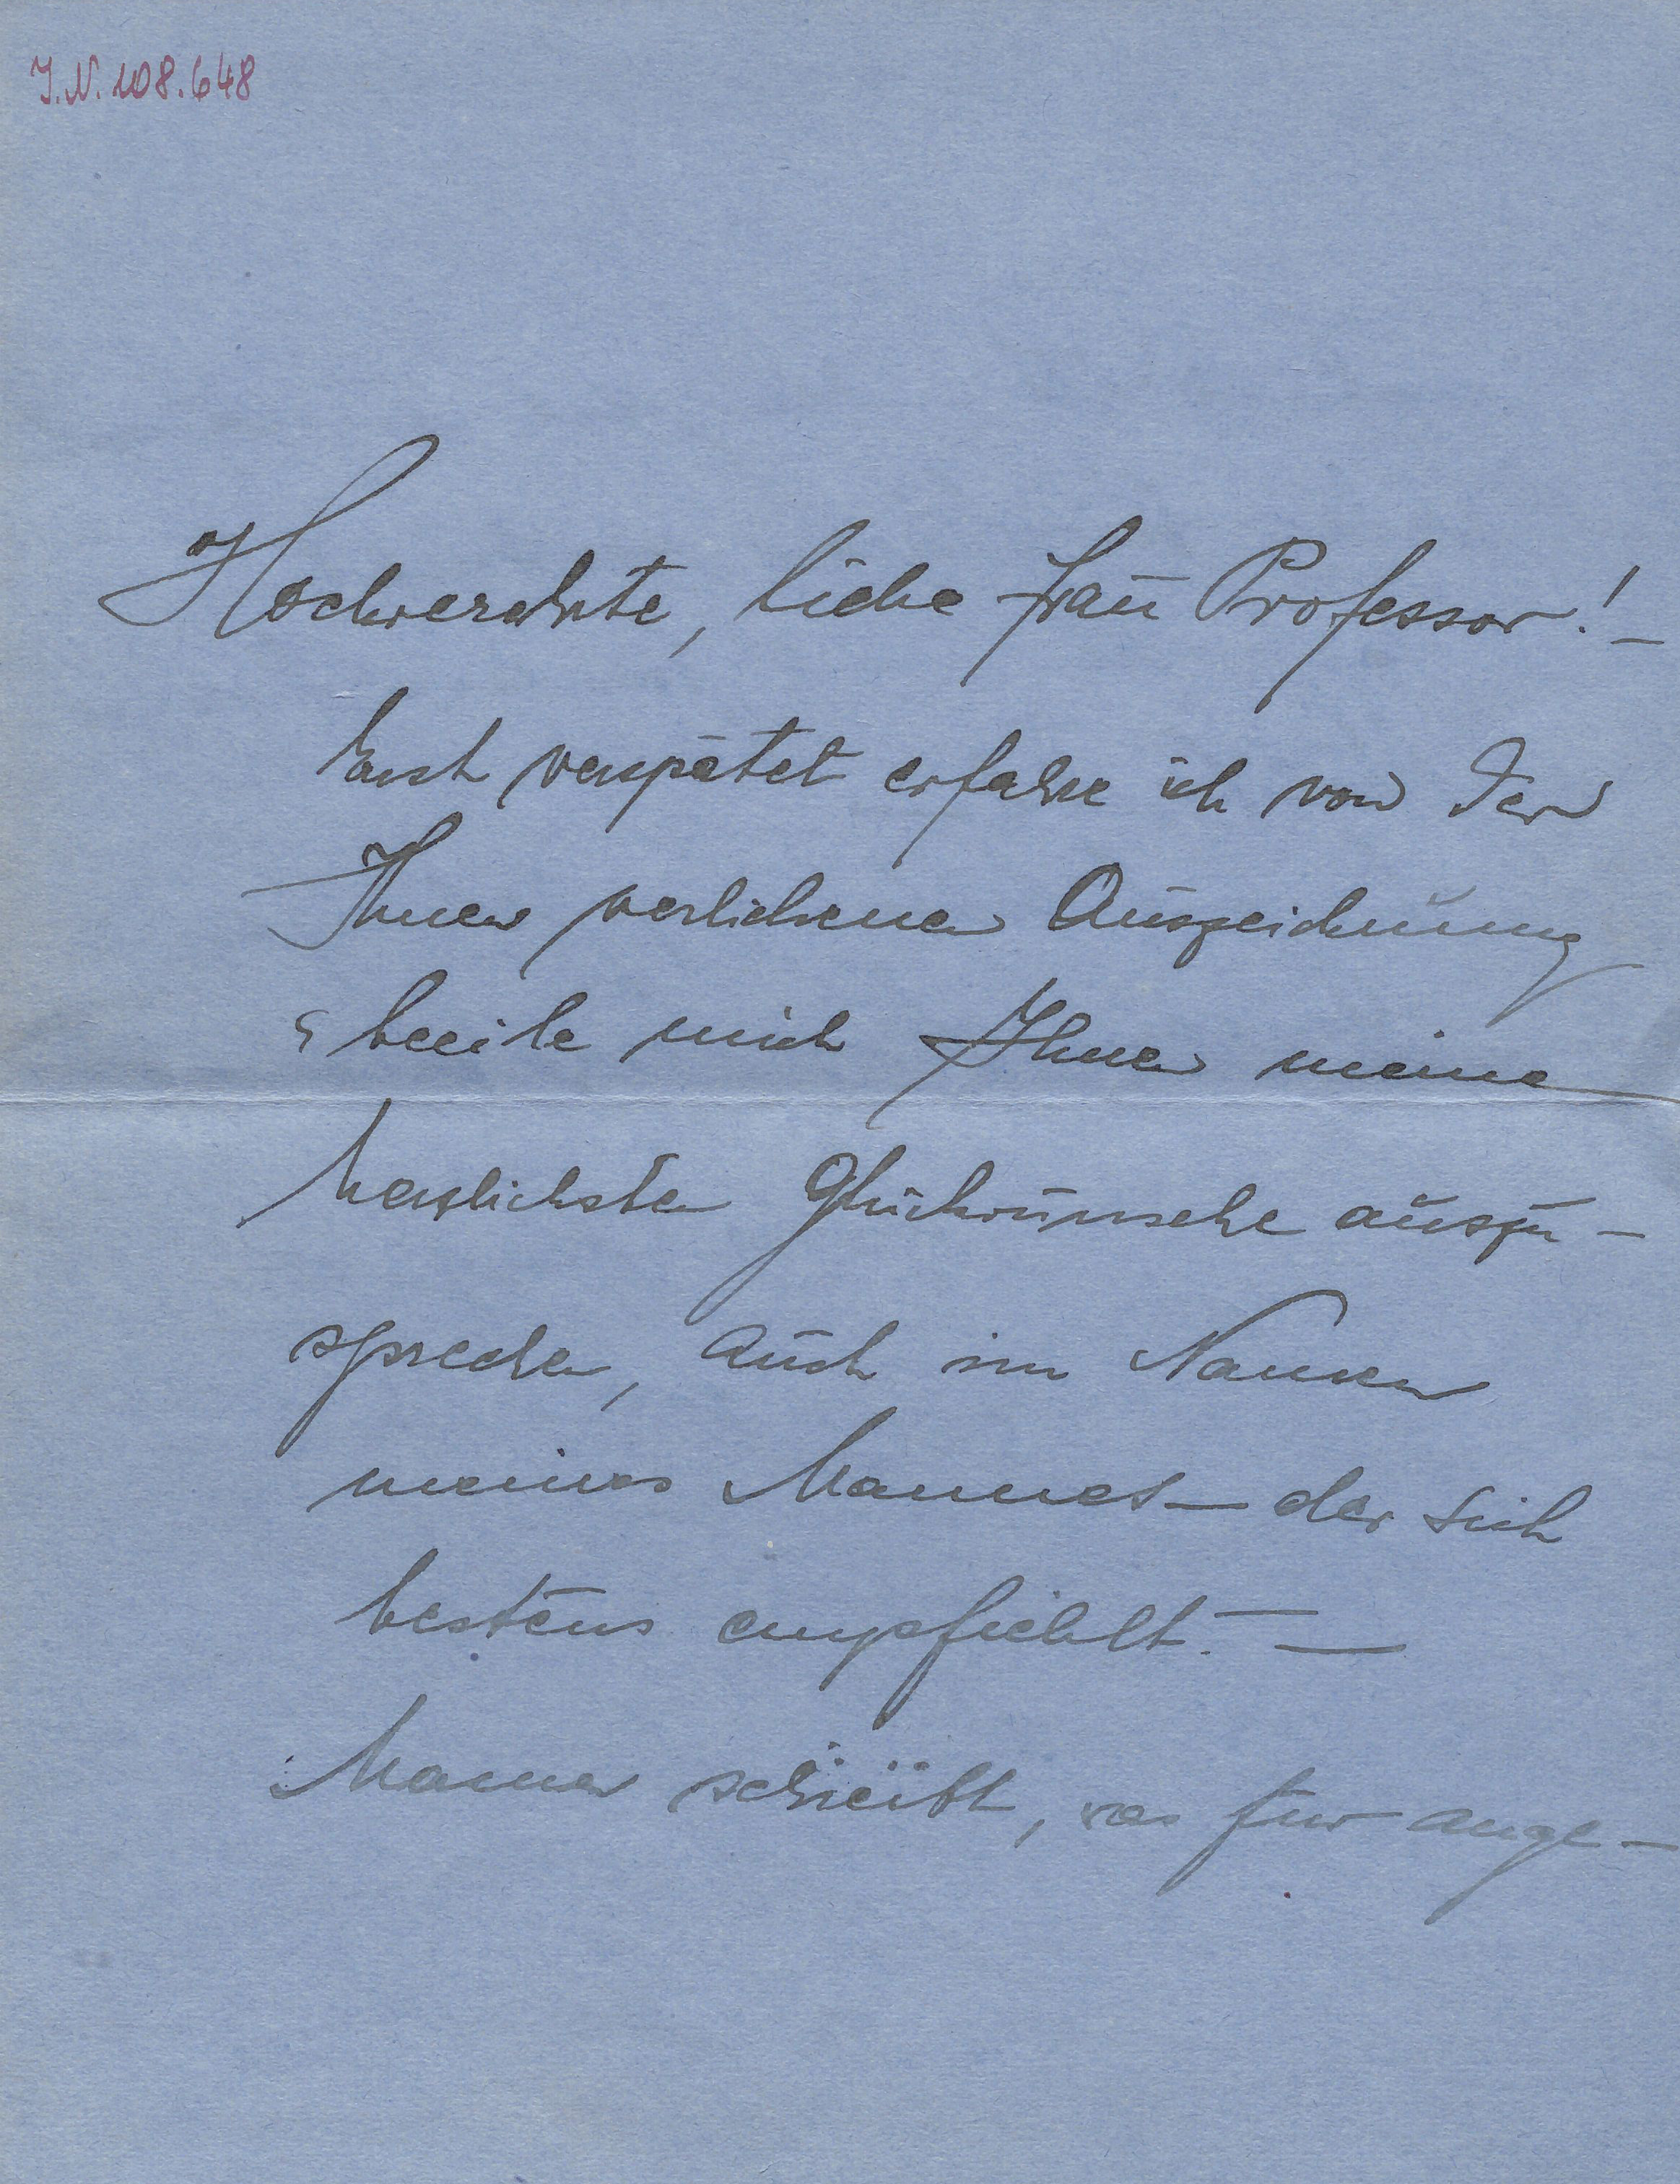 I.N. 108.648
Hochverehrte, liebe Frau Professor! –
Erst verspätet erfahre ich von der
Ihnen verliehenen Auszeichnung
& beeile mich Ihnen meine
herzlichsten Glückwünsche auszu –
sprechen, auch im Namen
meines Mannes – der sich
bestens empfiehlt. –
Mama schreibt, was für ange –